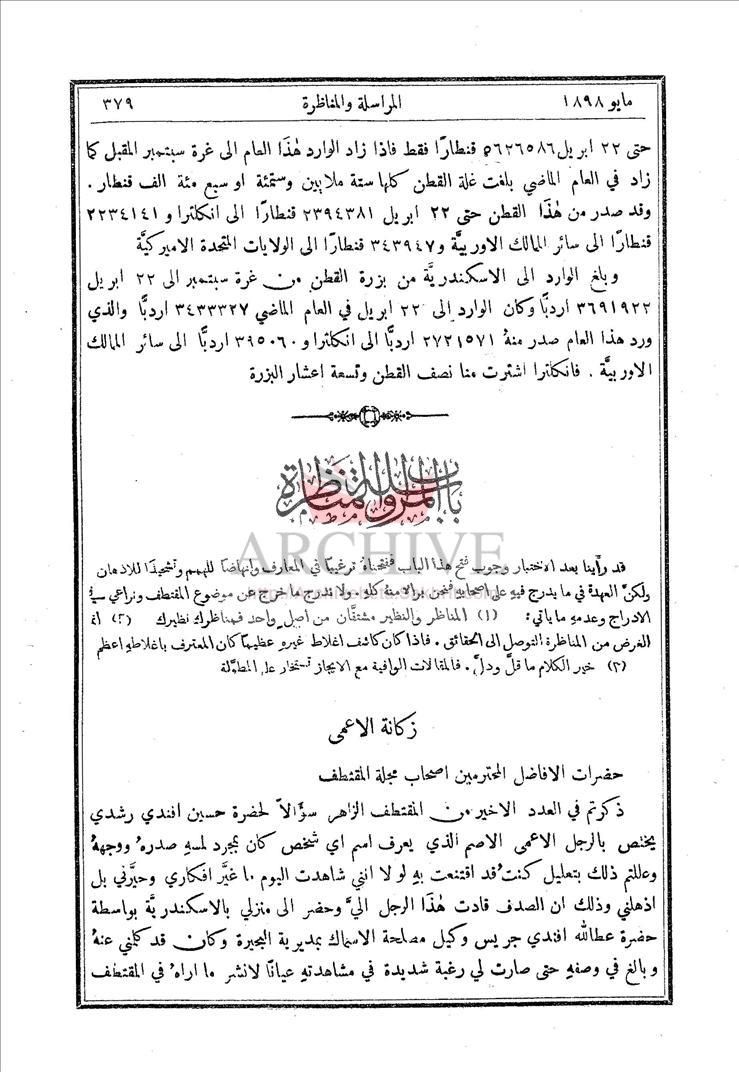 مايو ١٨٩٨ المراسلة والمناظرة ٣٧٩
حتى ٢٢ ابريل ٥٦٢٦٥٨٦ قنطارًا فقط فاذا زاد الوارد هٰذا العام الى غرة سبتمبر المقبل كما
زاد في العام الماضي بلغت غلة القطن كلها ستة ملايين وستمئة او سبع مئة الف قنطار .
وقد صدر من هٰذا القطن حتى ٢٢ ابريل ٢٣٩٤٣٨١ قنطارًا الى انكلترا و ٢٢٣٤١٤١
قنطارًا الى سائر الممالك الاوربيَّة و٣٤٣٩٤٧ قنطارًا الى الولايات المتحدة الاميركيَّة
وبلغ الوارد الى الاسكندريَّة من بزرة القطن من غرة سبتمبر الى ٢٢ ابريل
٣٦٩١٩٢٢ اردبًّا وكان الوارد الى ٢٢ ابريل في العام الماضي ٣٤٣٣٣٢٧ اردبًّا والذي
ورد هذا العام صدر منهُ ٢٧٢١٥٧١ اردبًّا الى انكلترا و ٣٩٥٠٦٠ اردبًّا الى سائر الممالك
الاوربيَّة . فانكلترا اشترت منا نصف القطن وتسعة اعشار البزرة
باب المراسلة والمناظرة
ARCHIVE
قد رأينا بعد الاختبار وجوب فتح هذا الباب ففتحناهُ ترغيبًا في المعارف وانهاضًا للهمم وتشحيذًا للاذهان
ولكنَّ العهدة في ما يدرج فيهِ على اصحابهِ فنحن براء منه كلهِ ولا ندرج ما خرج عن موضوع المقتطف ونراعي في
الادراج وعدمهِ ما ياتي: (١) المناظر والنظير مشتقَّان من اصلٍ واحد فمناظرك نظيرك (٢) انما
الغرض من المناظرة التوصل الى الحقائق . فاذا كان كاشف اغلاط غيرهِ عظيمًا كان المعترف باغلاطهِ اعظم
(٣) خير الكلام ما قلَّ ودلَّ . فالمقالات الوافية مع الايجاز تستخار على المطوَّلة
زكانة الاعمى
حضرات الافاضل المحترمين اصحاب مجلة المقتطف
ذكرتم في العدد الاخير من المقتطف الزاهر سؤالاً لحضرة حسين افندي رشدي
يختص بالرجل الاعمى الاصم الذي يعرف اسم اي شخص كان بمجرد لمسهِ صدرهُ ووجههُ
وعللتم ذلك بتعليل كنتُ قد اقتنعت بهِ لولا انني شاهدت اليوم ما غيَّر افكاري وحيَّرني بل
اذهلني وذلك ان الصدف قادت هٰذا الرجل اليَّ وحضر الى منزلي بالاسكندريَّة بواسطة
حضرة عطالله افندي جريس وكيل مصلحة الاسماك بمديرية البحيرة وكان قد كلمني عنهُ
وبالغ في وصفهِ حتى صارت لي رغبة شديدة في مشاهدتهِ عيانًا لانشر ما اراهُ في المقتطف